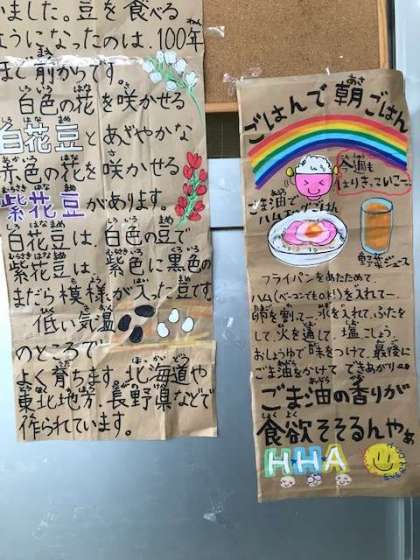 いました。豆を食べる
ようになったのは、100年
ほど前からです。
白色の花を咲かせる
白花豆とあざやかな
赤色の花を咲かせる
紫花豆があります。
白花豆は、白色の豆で
紫花豆は、紫色に黒色の
まだら模様が入った豆です
低い気温
のところで
よく育ちます。北海道や
東北地方、長野県などで
作られています。
ごはんで朝ごはん
今週も
はりきっていこー
ごま油で
ハムエッグごはん
野菜ジュース
フライパンをあたためて、
ハム(ベーコンでもOK!)を入れて、
卵を割って、水を入れて、ふたを
して、火を通して、塩こしょう。
おしょうゆで味をつけて、最後に
ごま油をかけて できあがり
ごま油の香りが
食欲そそるんやぁ
HHA